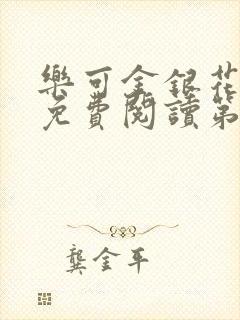 樂可金銀花
免費閱讀第
龔金平